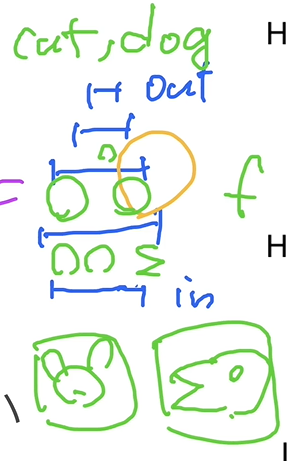 cat, dog
H
out
f
H
in